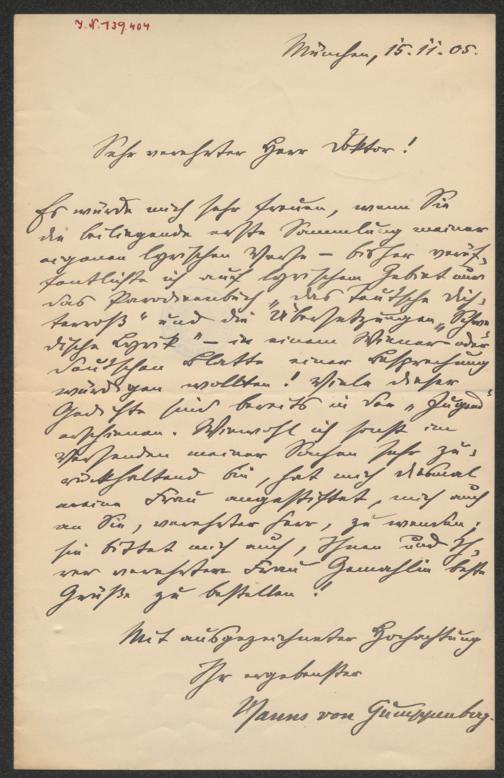 J. N. 139.404
München, 15. 11. 05.
Sehr verehrter Herr Doktor!
Es würde mich sehr freuen, wenn Sie
die beiliegende erste Sammlung meiner
eigenen lyrischen Verse – bisher veröf-
fentlichte ich auf lyrischem Gebiet nur
das Parodieenbuch „das teutsche Dich-
terroß" und die Übersetzungen „Schwe-
dische Lyrik" – in einem Wiener oder
deutschen Blatte einer Besprechung
würdigen wollten! Viele dieser
Gedichte sind bereits in der „Jugend"
erschienen. Wiewohl ich sonst im
Versenden meiner Sachen sehr zu-
rückhaltend bin, hat mich diesmal
meine Frau angestiftet, mich auch
an Sie, verehrter Herr, zu wenden;
sie bittet mich auch, Ihnen und Ih-
rer verehrten Frau Gemahlin beste
Grüße zu bestellen!
Mit ausgezeichneter Hochachtung
Ihr ergebenster
Hanns von Gumppenberg.